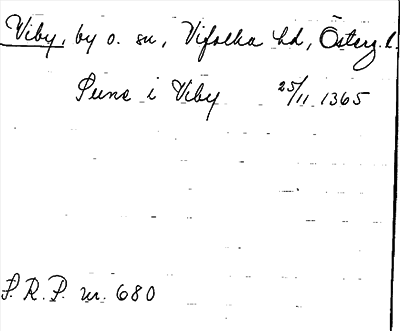 Viby, by o. sn, Vifolka hd, Österg. l.
Sune i Viby 25/11 1365
S. R. P. nr. 680